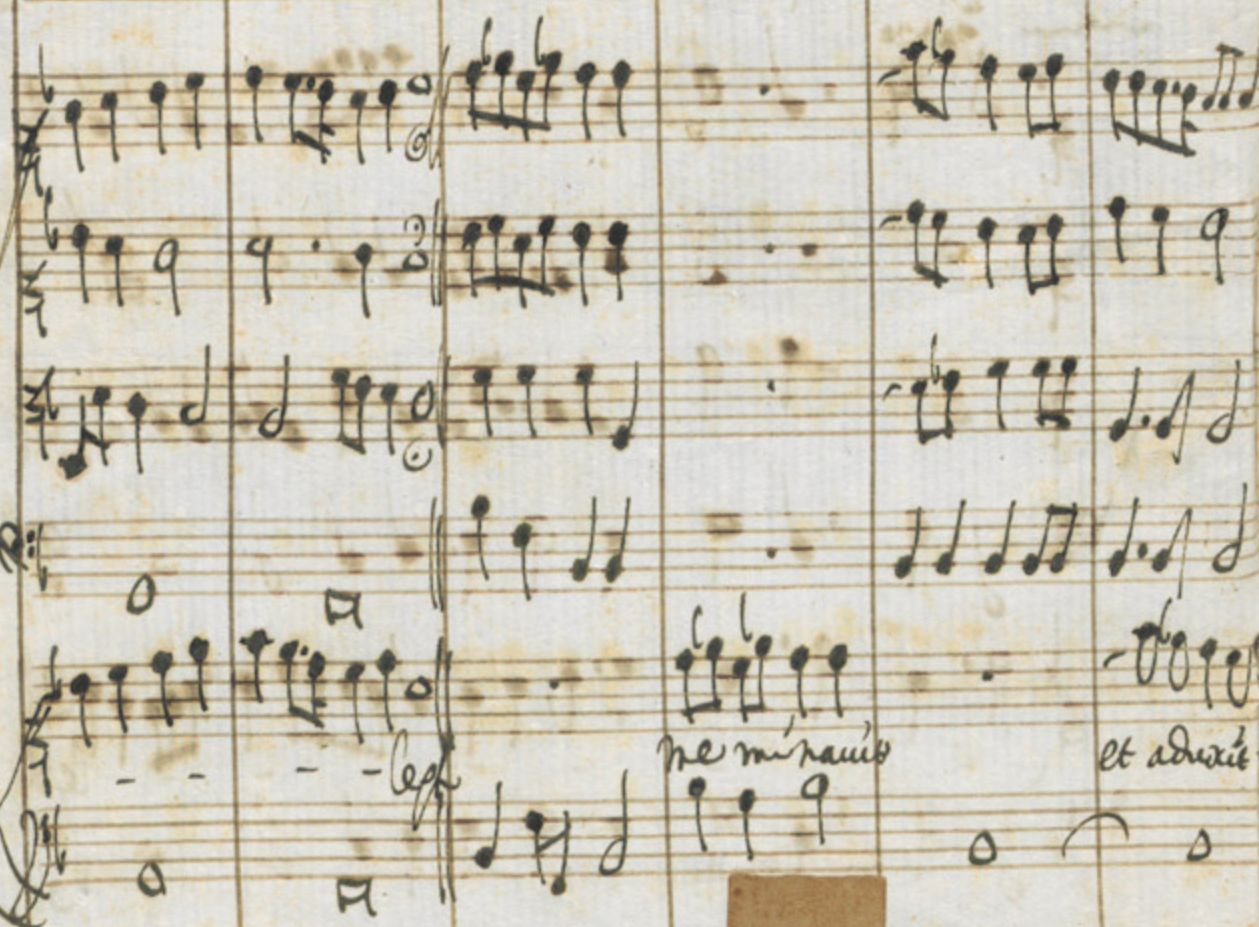 - - - - lex
me minavit et aduxit